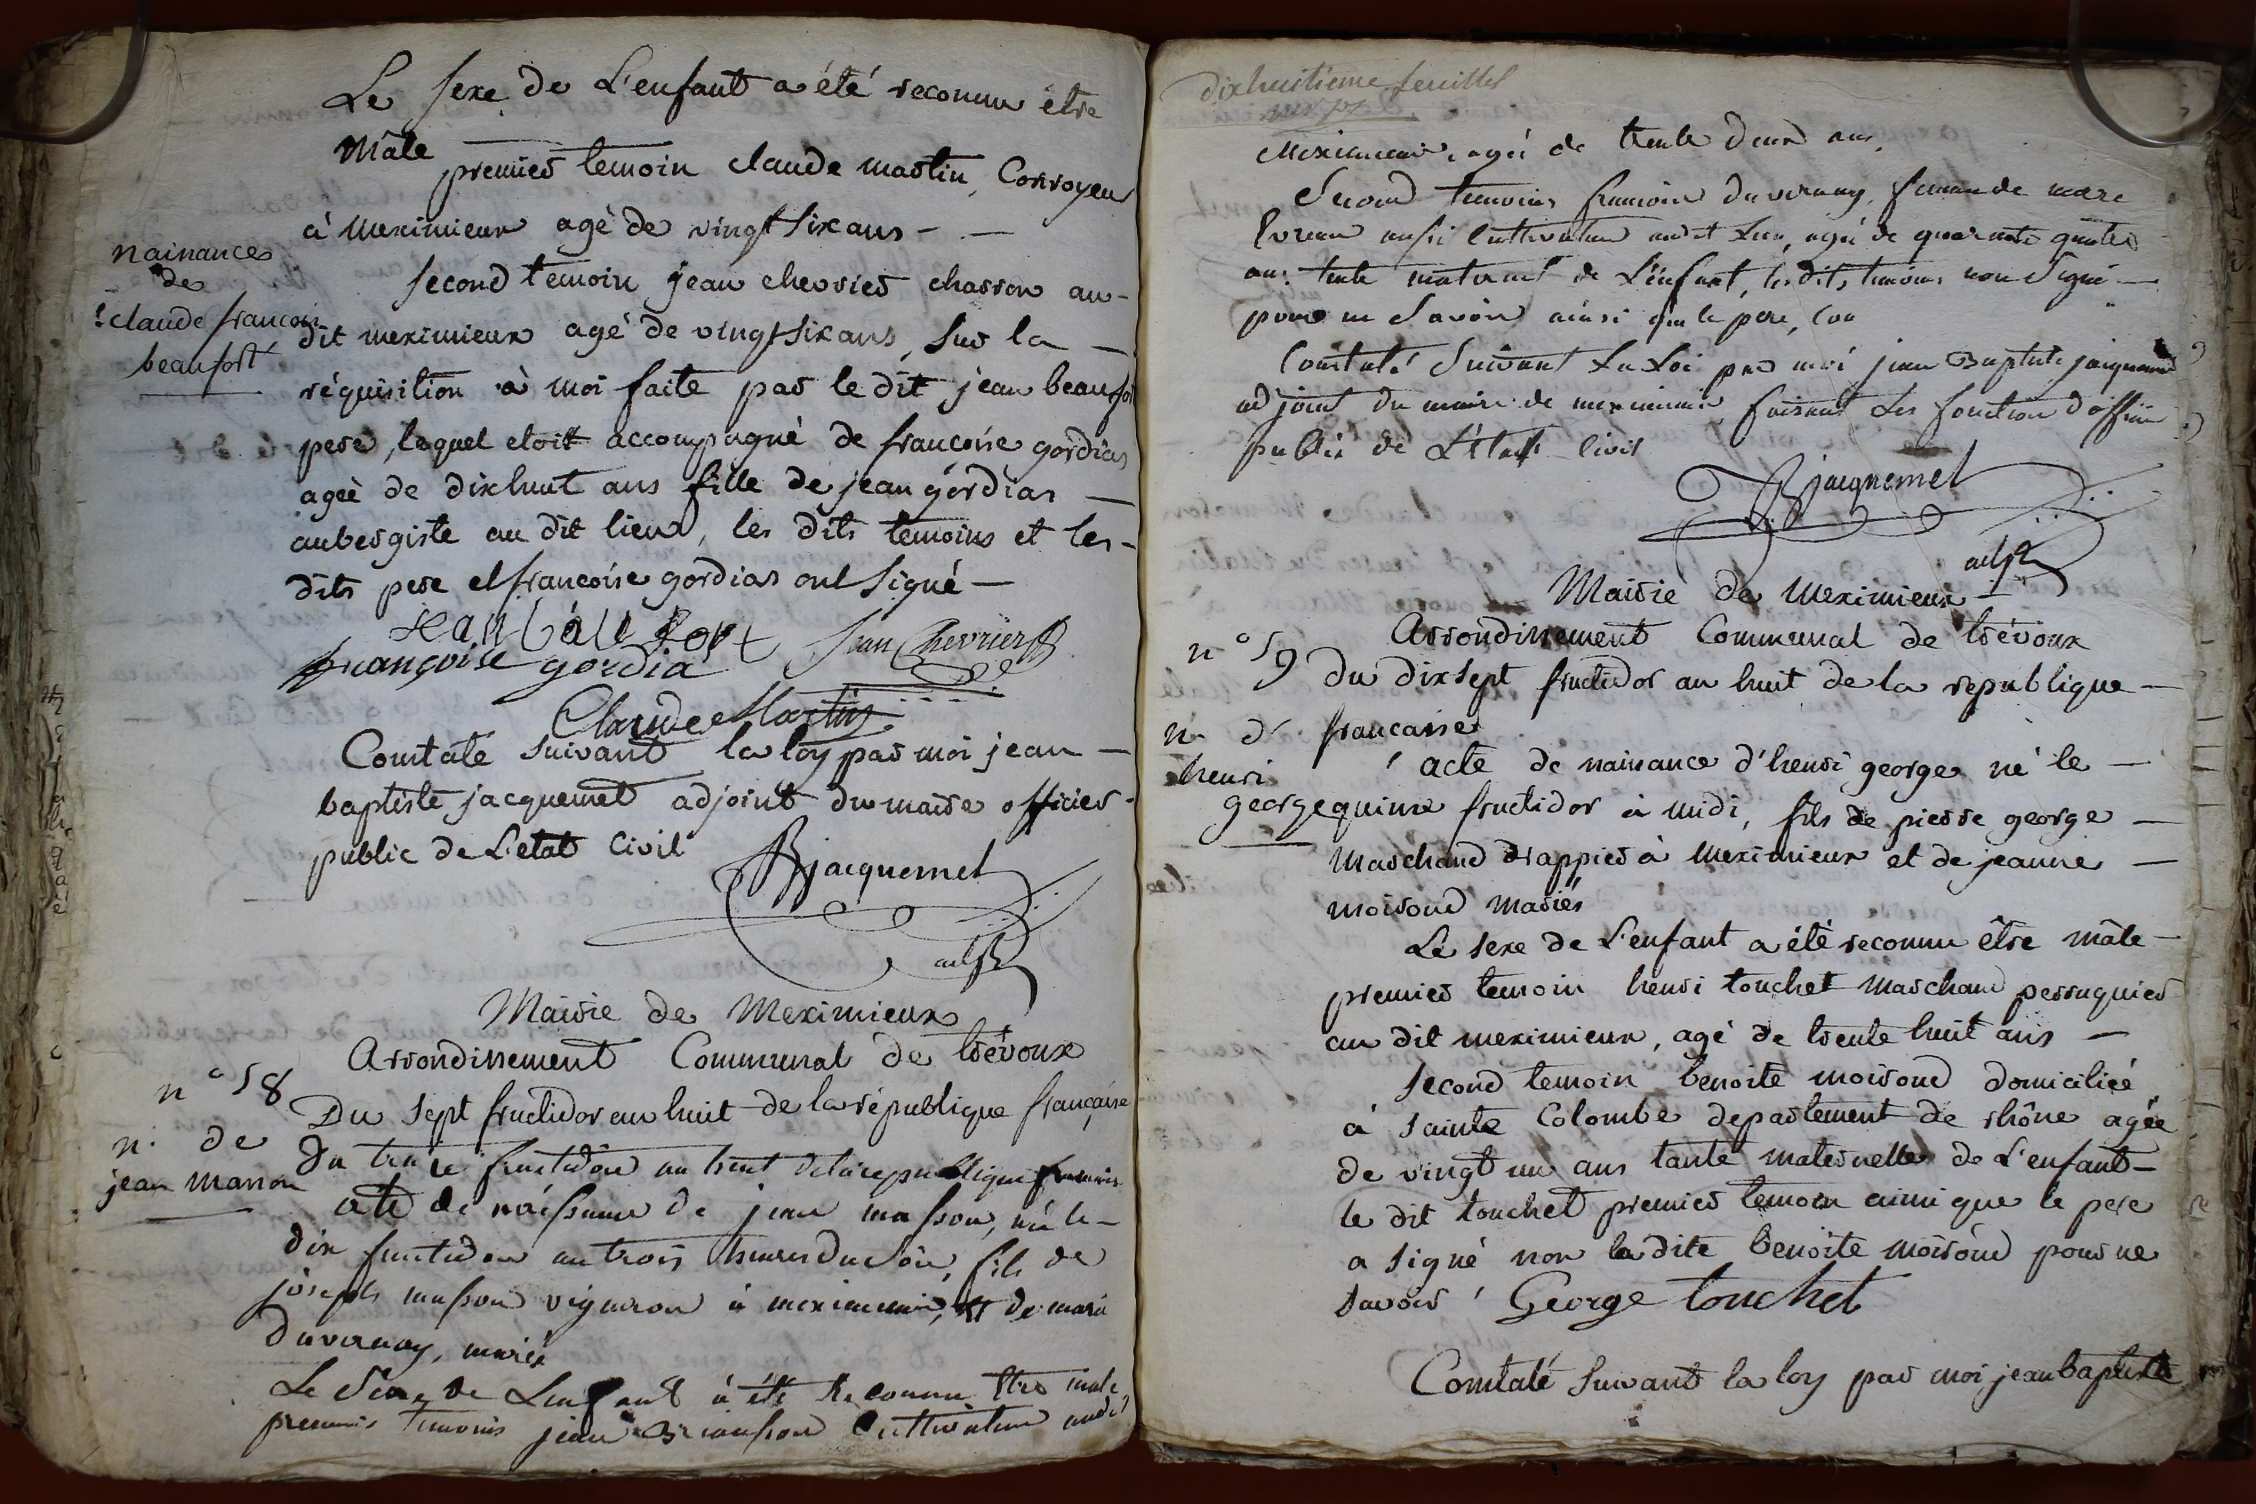 Le sexe de L'enfant a été reconnu être
Mâle
premier temoin claude martin, Corroyeur
à meximieux agé de vingt six ans -
nainance
de
claude francois
beaufort
second temoin jean chevrier charron au-
dit meximieux agé de vingt six ans, sur la -
réquisition à moi faite par le dit jean beaufort
pere, lequel etoit accompagné de francoise gordias
ageè de dix huit ans fille de jean gordias -
aubergiste au dit lieu, les dits temoins et les-
dits pere et francoise gordias ont signé -
jean baufort Jean Chevrier
françoise gordia
Claude Martin
Contaté suivant la loy par moi jean -
baptiste jacquemet adjoint du maire officier
public de L'etat Civil
JBjacquemet
adjt
Mairie de Meximieux
Arrondissement Communal de trévoux
n° 58
Du sept fructidor an huit de la république française
n. de
jean masson
du treize fructidor an huit de la republique francaise
acte de naissance de jean masson, né le -
dix fructidor au trois heures du soir, fils de
joseph masson vigneron à meximieux, et de marie
Duvernay, mariés
Le sexe de Lenfant à été Reconnu Etre male
premier temoins jean cultivateur audit
dixhuitieme feuillet
Meximieux, agé de trente deux ans,
Second temoins francoise duvernay, femme de marc
aussi Cultivateur audit Lieu, agé de quarante quatre
ans tente maternel de L'enfant, les dits temoins non Signé -
pour ne Savoir ainsi que le pere,
Constaté Suivant La Loi par moi jean Baptiste jacquemet
adjoint du maire de meximieux faisant les fonction d'officier
public de L'Etat civil
JBjacquemet
adjt
Mairie de Meximieux
Arrondissement Communal de trévoux
n° 59
du dix sept fructidor an huit de la republique -
n. d'
henri
george
francaise
acte de nainance d'henri george né le -
quinze fructidor à midi, fils de pierre george -
marchand drappier à meximieux et de jeanne -
moiroud mariés
Le sexe de L'enfant a été reconnu être mâle -
premier temoin henri touchet marchand perruquier
au dit meximieux, agé de trente huit ans -
second temoin benoite moiroud domiciliée
à sainte Colombe departement de rhône agée
de vingt un ans tante maternelle de L'enfant -
le dit touchet premier temoin ainsi que le pere
a signé non la dite benoite moiroud pour ne
savoir George touchet
Contaté suivant la loy par moi jean baptiste